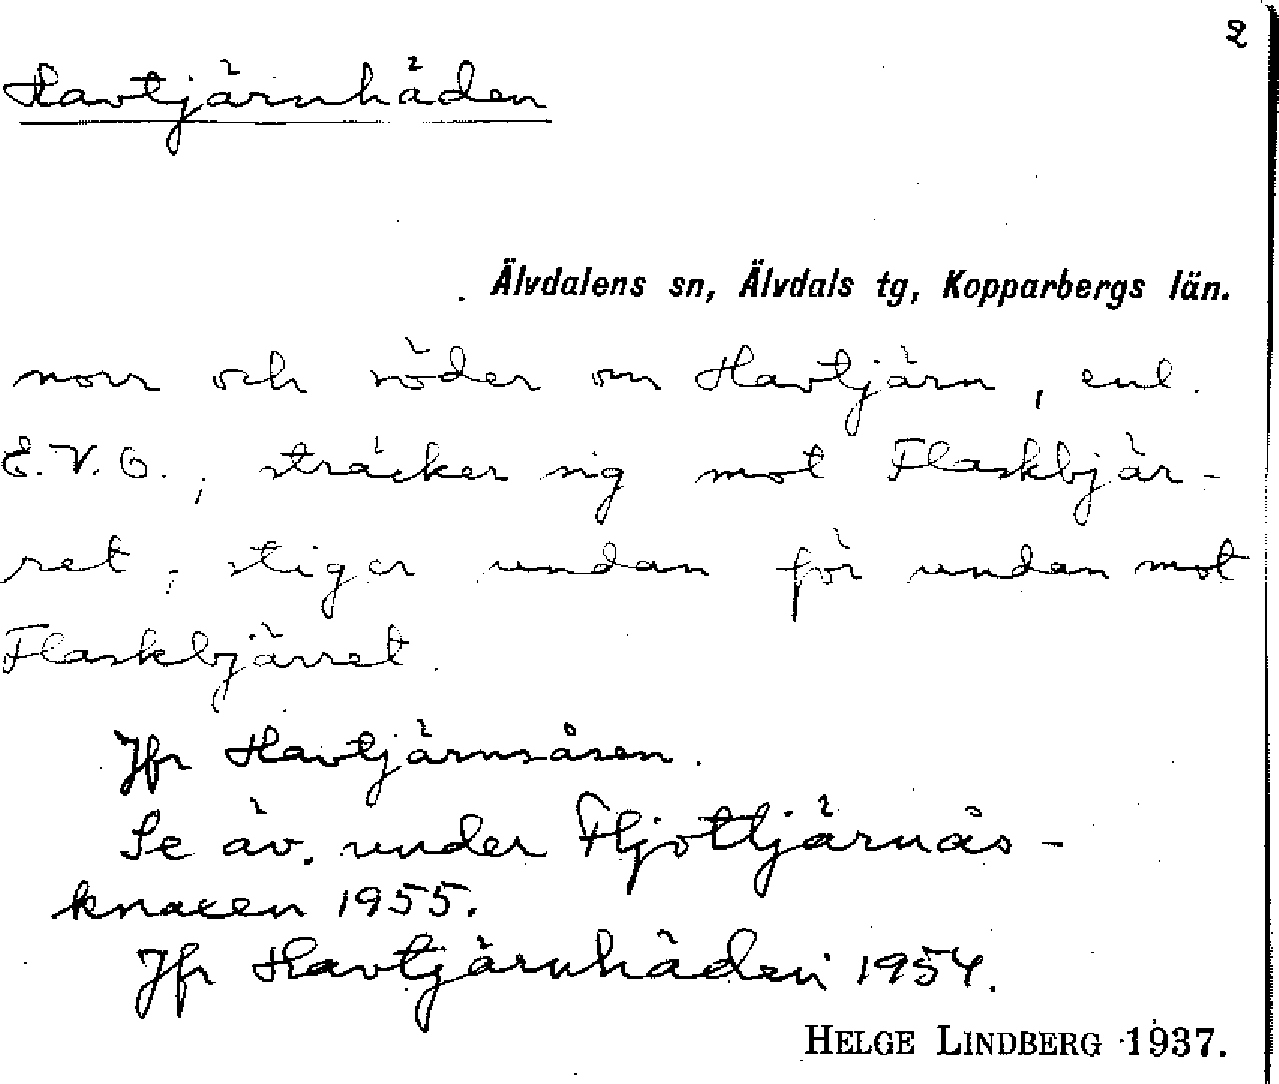 2
Havtjärnhäden
Älvdalens sn, Älvdals tg, Kopparbergs län.
norr och söder om Havtjärn, enl.
E.V.O.; sträcker sig mot Flaskbjär-
ret; stiger undan för undan mot
Flaskbjärret.
Jfr Havtjärnsåsen.
Se äv. under Fljottjärnäs-
knacen 1955.
Jfr Havtjärnhäden 1954.
HELGE LINDBERG 1937.